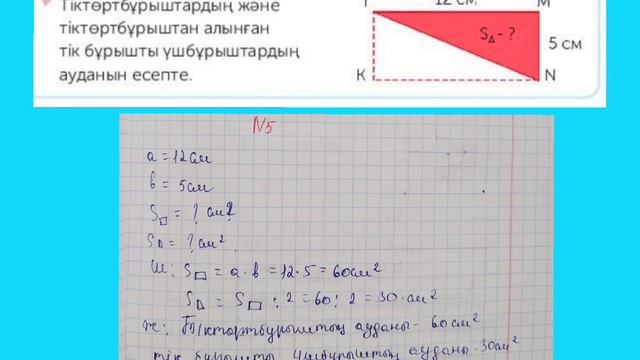 Тіктөртбұрыштардың және
тіктөртбұрыштан алынған
тік бұрышты үшбұрыштардың
ауданын есепте.
12 см
M
S△ - ?
5 см
K
N
N5
a = 12 см
b = 5 см
S□ = ? см²
S△ = ? см²
Ш: S□ = a · b = 12 · 5 = 60 см²
S△ = S□ : 2 = 60 : 2 = 30 см²
Ж: Тіктөртбұрыштың ауданы - 60 см²
тік бұрышты үшбұрыштың ауданы - 30 см²